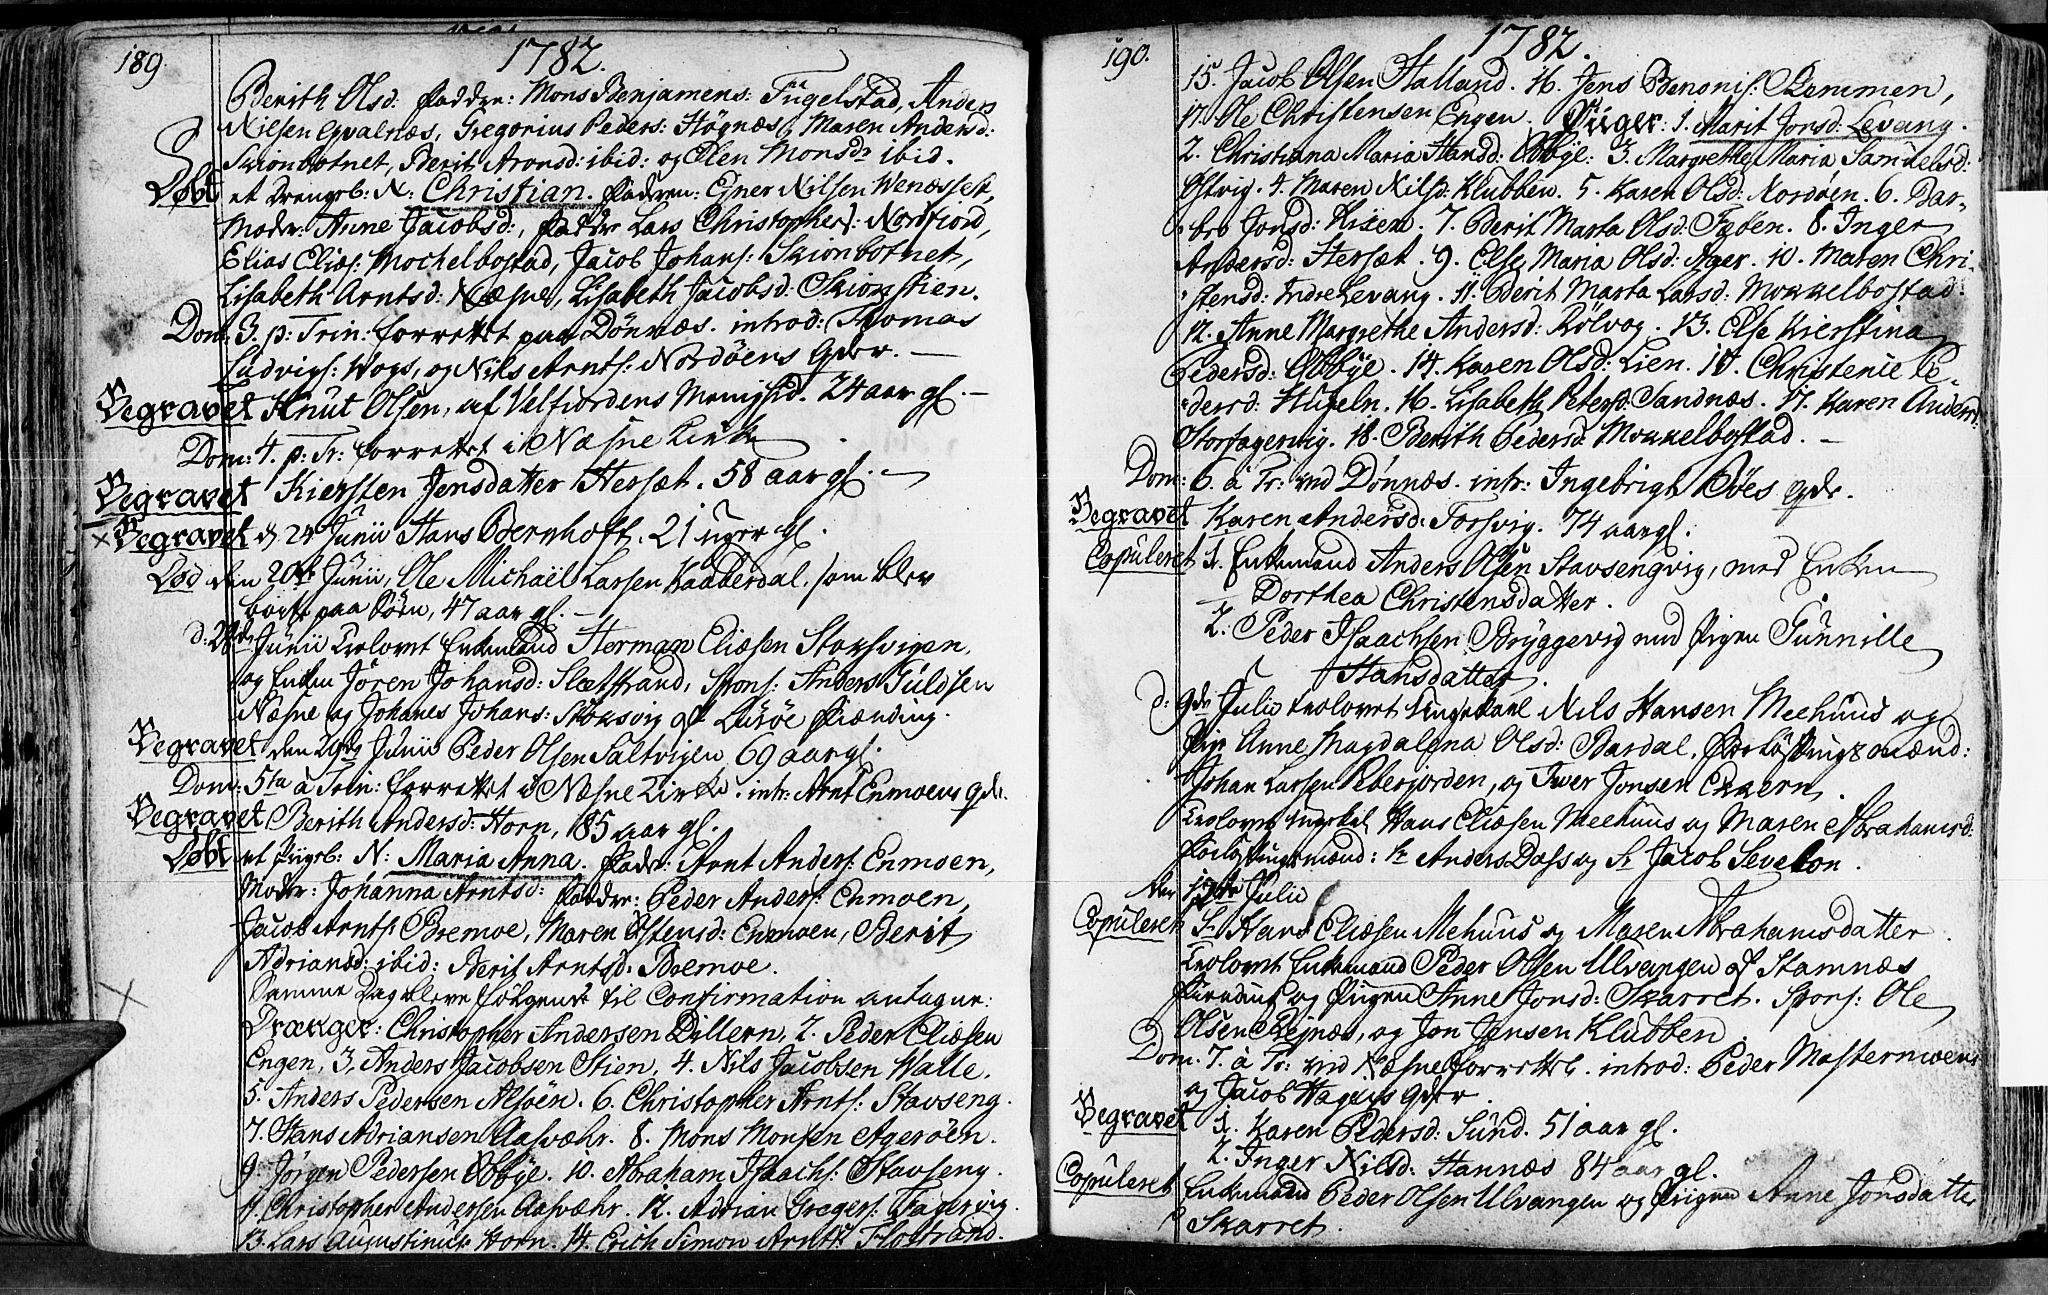 189.
1782.
Berith Olsd: Faddre: Mons Benjamens: Fugelstad, Anders
Nilsen Qvalnæs, Gregorius Peders: Høgnæs, Maren Andersd:
Skionbotnet, Berit Aronsd: ibid: og Elen Monsdr ibid.
Døbt et Drengeb: N: Christian. Faderen: Ejner Nilsen
Moder: Anne Jacobsd:, Faddre Lars Christophers: Nordfiord,
Elias Elias: Mochelbostad, Jacob Johans: Skionbotnet,
Lisabeth Arntsd: Næsne, Lisabeth Jacobsd: Skionstien.
Dom: 3. p: Trin: forrettet paa Dønnæs. introd: Thomas
Ludvigs: Wogs, og Nils Arnts: Nordøens Qder. —
Begravet Knut Olsen, af Velfiordens Menighd. 24 aar gl. —
Dom: 4. p: Tr: forrettet i Næsne Kirke.
Begravet Kiersten Jensdatter Hersæt. 58 aar gl. —
× Begravet d 24 Junii Hans Bernhoft. 21 uger gl.
Død den 20de Junii, Ole Michaël Larsen Kaaberdal, som blev
borte paa Søen, 47 aar gl. —
Junii trolovet Enkemand Herman Eliæsen Stoksvigen,
og Enken Jören Johansd: Slætstrand, Spons: Anders Guldsen
Næsne og Johanes Johans: Stoksvig af Lurøe Fierding.
Begravet den 29de Junii Peder Olsen Saltvigen 69 aar gl.
Dom: 5ta à Trin: forrettet i Næsne Kirke. intr: Arnt Enmoens Qde.
Begravet Berith Andersd: Horn, 85 aar gl.
Døbt et Pigeb: N: Maria Anna. Fadr: Arnt Anders: Enmoen,
Modr: Johanna Arntsd: Faddre: Peder Anders: Enmoen,
Jacob Arnts: Bremoe, Maren Ostensd: Enmoen, Berit
Adriansd: ibid: Berit Arntsd: Bremoe.
Samme Dag bleve følgende til Confirmation antagne:
Drænger: Christopher Andersen Dillern, 2. Peder Eliæsen
Engen, 3, Anders Jacobsen Stien, 4. Nils Jacobsen Walle.
5. Anders Pedersen Alsöen. 6. Christopher Arnts: Stavseng.
7. Hans Adriansen Aasvæhr. 8. Mons Monsen Agerøen.
9. Jørgen Pedersen Ebbye. 10. Abraham Isaachs: Stavseng.
11. Christopher Andersen Aasvæhr. 12. Adrian Gregers: Fagervig.
13. Lars Augustinus: Horn. 14. Erich Simon Arnts: Flostrand.
190.
1782.
15. Jacob Olsen Halland. 16. Jens Benonis: Remmen,
17. Ole Christensen Engen. Piiger: 1. Marit Jonsd: Levang.
2. Christiana Maria Hansd: Ebbye: 3. Margrethe Maria Samuelsd:
Østvig, 4. Maren Nilsd: Klubben. 5. Karen Olsd: Nordøen. 6. Bar-
bro Jonsd: Kisen. 7. Berit Marta Olsd: Søben. 8. Inger
Andersd: Hersæt. 9. Else Maria Olsd: Ager. 10. Maren Chri-
stensd: Indre Levang. 11. Berit Marta Larsd: Mokkelbostad.
12. Anne Margrethe Andersd: Rölvog. 13. Else Kierstina
Pedersd: Ebbye. 14. Karen Olsd: Lien. 15. Christenie Pe-
dersd: Hugeln. 16. Lisabeth Petersd: Sandnæs. 17. Karen Andersd:
Storfagervig. 18. Berith Pedersd: Mokkelbostad. —
Dom: 6. à Tr: ved Dønnæs. intr: Ingebrigt Böes Qde.
Begravet Karen Andersd: Forsvig. 74 aar gl.
Copuleret 1. Enkemand Anders Olsen Stavsengvig, med Enken
Dorthea Christensdatter.
2. Peder Isaachsen Bryggevig med Pigen Gunnille
Hansdatter.
d: 9de Julii trolovet Ungekarl Nils Hansen Meehuus og
Pig: Anne Magdalena Olsd: Bardal. Forløftningsmænd:
Johan Larsen Peterjorden, og Iwer Jonsen Ekkern.
trolovet Ungekel Hans Eliæsen Meehuus og Maren Abrahamsd:
Forløftningsmænd: Sr Anders Dass og Sr Jacob Sevelon.
den 17de Julii
Copuleret Sr Hans Eliæsen Mehuus og Maren Abrahamsdatter.
trolovet Enkemand Peder Olsen Ulvangen af Stamnæs
Fierding og Pigen Anne Jonsd: Skarret. Spons: Ole
Olsen Rejnæs, og Jon Jensen Klubben.
Dom. 7. à Tr: ved Næsne forrettet. introd: Peder Mastermoens
og Jacob Hagens Qder.
Begravet 1. Karen Pedersd: Sund. 51 aar gl.
2. Inger Nilsd: Hannæs 84 aar gl.
Copuleret Enkemand Peder Olsen Ulvangen og Pigen Anne Jonsdatter
Skarret.